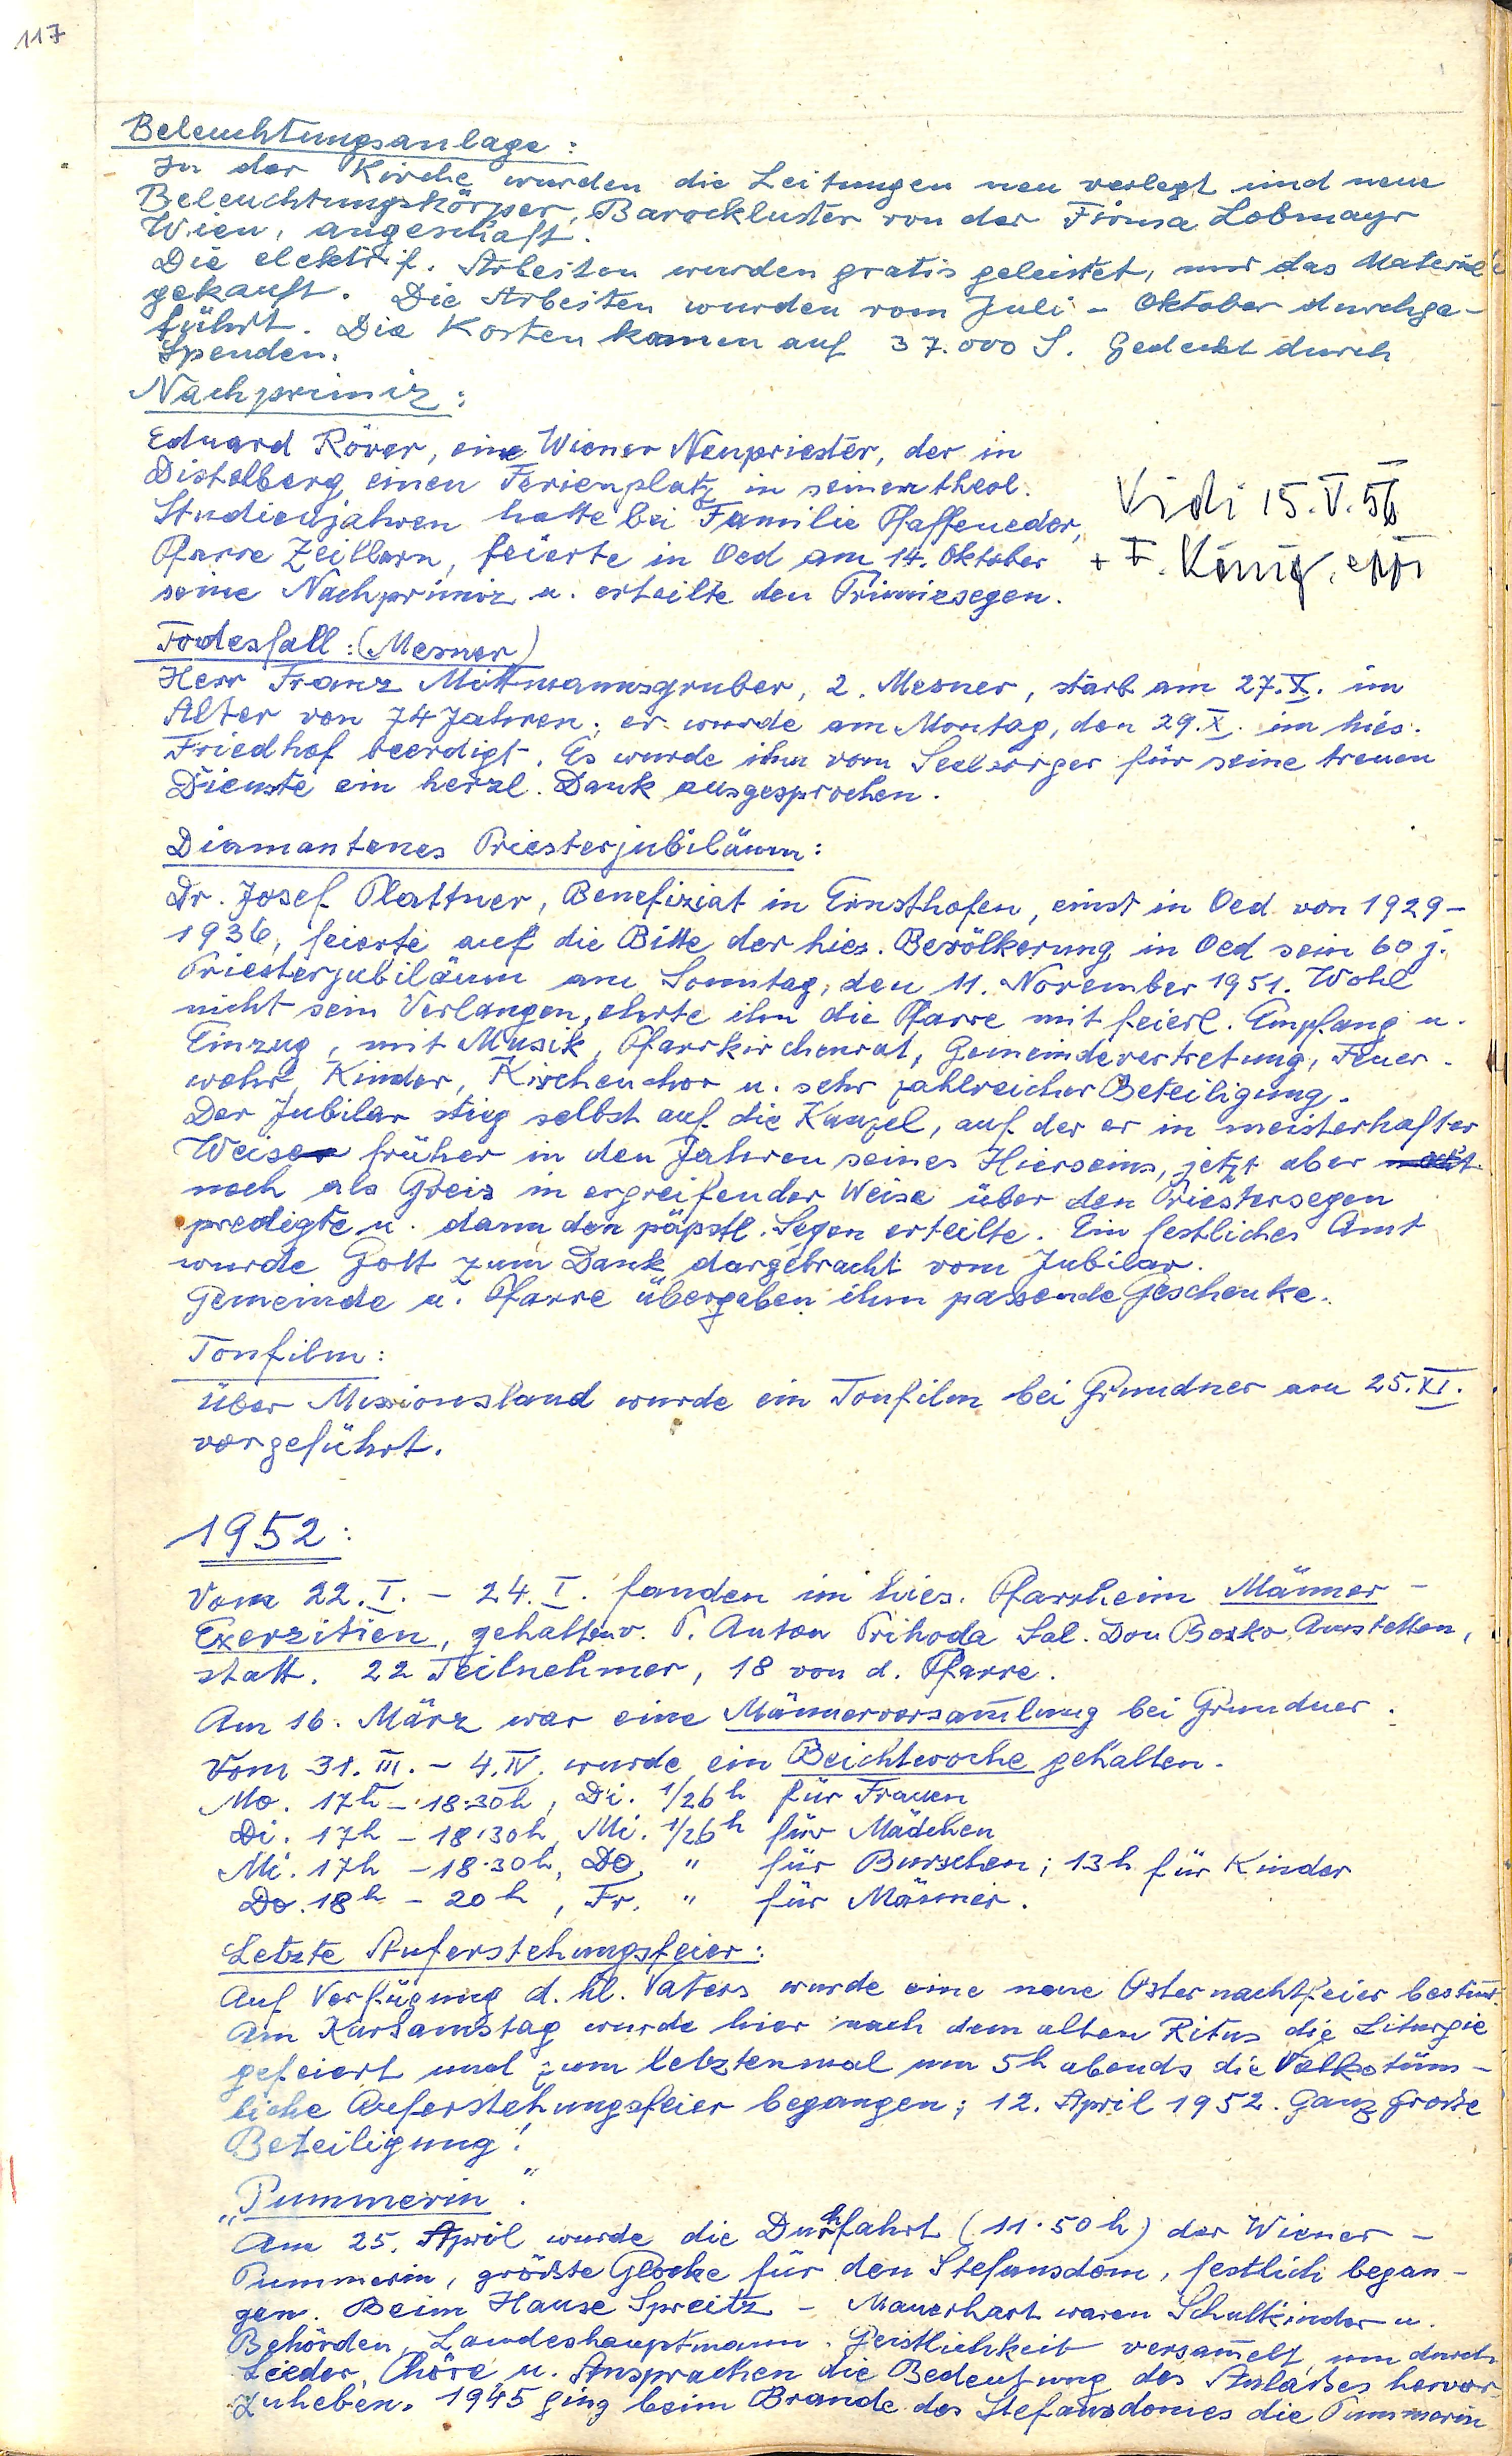 117
Beleuchtungsanlage:
In der Kirche wurden die Leitungen neu verlegt und neue
Beleuchtungskörper, Barockluster von der Firma Lobmayr
Wien, angeschaft.
Die elektrif. Arbeiten wurden gratis geleistet, nur das Material
gekauft. Die Arbeiten wurden vom Juli - Oktober durchge-
führt. Die Kosten kamen auf 37.000 S. Gedeckt durch
Spenden.
Nachprimiz:
Eduard Röver, eine Wiener Neupriester, der in
Distelberg einen Ferienplatz in seinen theol.
Studienjahren hatte bei Familie Pfaffeneder,
Pfarre Zeillern, feierte in Oed am 14. Oktober
seine Nachprimiz u. erteilte den Primizsegen.
Vidi 15.V.56
+ F. König, eppi
Todesfall: (Mesner)
Herr Franz Mittmannsgruber, 2. Mesner, starb am 27.X. im
Alter von 74 Jahren; er wurde am Montag, den 29.X. im hies.
Friedhof beerdigt. Es wurde ihm vom Seelsorger für seine treuen
Dienste ein herzl. Dank ausgesprochen.
Diamantenes Priesterjubiläum:
Dr. Josef Plattner, Benefiziat in Ernsthofen, einst in Oed von 1929-
1936, feierte auf die Bitte der hies. Bevölkerung in Oed sein 60 j.
Priesterjubiläum am Sonntag, den 11. November 1951. Wohl
nicht sein Verlangen, ehrte ihn die Pfarre mit feierl. Empfang u.
Einzug, mit Musik, Pfarrkirchenrat, Gemeindevertretung, Feuer-
wehr, Kinder, Kirchenchor u. sehr zahlreicher Beteiligung.
Der Jubilar stieg selbst auf die Kanzel, auf der er in meisterhafter
Weise früher in den Jahren seines Hierseins, jetzt aber
noch als Greis in ergreifender Weise über den Priestersegen
predigte u. dann den päpstl. Segen erteilte. Ein festliches Amt
wurde Gott zum Dank dargebracht vom Jubilar.
Gemeinde u. Pfarre übergaben ihm passende Geschenke.
Tonfilm:
Über Missionsland wurde ein Tonfilm bei Grundner am 25.XI.
vorgeführt.
1952:
Vom 22.I. - 24.I. fanden im hies. Pfarrheim Männer-
Exerzitien, gehalten v. P. Anton Prihoda Sal. Don Bosko Amstetten,
statt. 22 Teilnehmer, 18 von d. Pfarre.
Am 16. März war eine Männerversam̄lung bei Grundner.
Vom 31.III. - 4.IV. wurde ein Beichtwoche gehalten.
Mo. 17h - 18:30h, Di. 1/26h für Frauen
Di. 17h - 18:30h, Mi. 1/26h für Mädchen
Mi. 17h - 18:30h, Do. " für Burschen; 13h für Kinder
Do. 18h - 20h, Fr. " für Männer.
Letzte Auferstehungsfeier:
Auf Verfügung d. hl. Vaters wurde eine neue Osternachtfeier bestim̄t.
Am Karsamstag wurde hier nach dem alten Ritus die Liturgie
gefeiert und zum letztenmal um 5h abends die Volkstüm-
liche Auferstehungsfeier begangen; 12. April 1952. Ganz große
Beteiligung!
„Pummerin".
Am 25. April wurde die Durchfahrt (11.50h) der Wiener-
Pummerin, größte Glocke für den Stefansdom, festlich began-
gen. Beim Hause Spreitz - Mauerhart waren Schulkinder u.
Behörden, Landeshauptmann, Geistlichkeit versam̄elt, um durch
Lieder, Chöre u. Ansprachen die Bedeutung des Anlaßes hervor-
zuheben. 1945 ging beim Brande des Stefansdomes die Pummerin